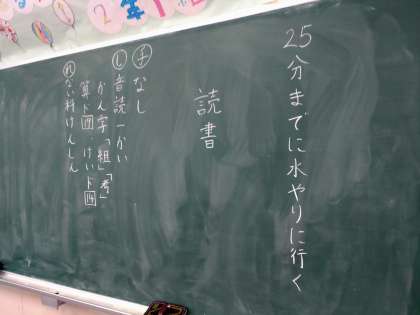 25分までに水やりに行く
読書
㋢なし
㋛音読一かい
かん字「組」「考」
算ド⑲、けいド⑭
㋹ない科けんしん